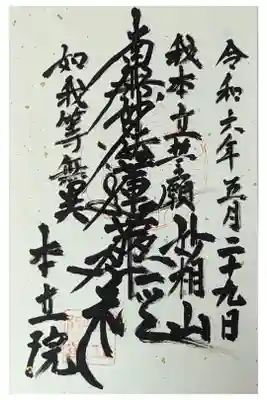 令和六年五月二十九日
我本立誓願 妙相山
南無妙法蓮華経
如我等無異 本立院